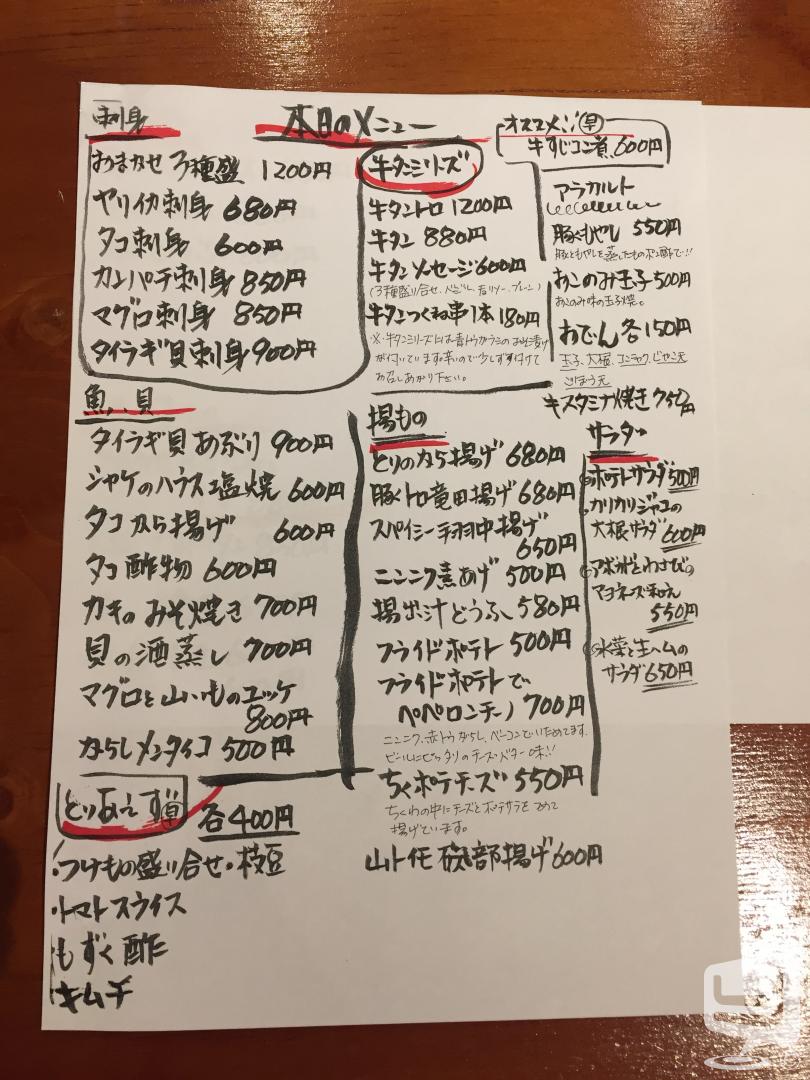 刺身
おまかせ 3種盛 1200円
ヤリイカ刺身 680円
タコ刺身 600円
カンパチ刺身 850円
マグロ刺身 850円
タイラギ貝刺身 900円
本日のメニュー
牛タンシリーズ
牛タントロ 1200円
牛タン 880円
牛タンソーセージ 600円
牛タンつくね串1本 180円
※牛タンシリーズには青トウガラシのみそ漬け
が付いています。辛いので少しずつ付けて
お召しあがり下さい。
オススメ 早
牛すじコン煮 600円
アラカルト
豚ともやし 550円
豚ともやしを蒸したものポン酢で!!
おこのみ玉子 500円
おこのみ味の玉子焼。
おでん各150円
玉子、大根、コンニャク、じゃこ天
ごぼう天
キスタミナ焼き 750円
魚、貝
タイラギ貝あぶり 900円
シャケのハラス塩焼 600円
タコから揚げ 600円
タコ酢物 600円
カキのみそ焼き 700円
貝の酒蒸し 700円
マグロと山いものユッケ
800円
からしメンタイコ 500円
とりあえず 早
各400円
つけもの盛り合せ・枝豆
トマトスライス
もずく酢
キムチ
揚もの
とりのから揚げ 680円
豚トロ竜田揚げ 680円
スパイシー手羽中揚げ
650円
ニンニク素あげ 500円
揚出汁どうふ 580円
フライドポテト 500円
フライドポテトで
ペペロンチーノ 700円
ニンニク、赤トウガらし、ベーコンでいためてます。
ビールにピッタリのチーズ・バター味!!
ちくポテチーズ 550円
ちくわの中にチーズとポテサラをつめて
揚げています。
山ト芋磯部揚げ 600円
サラダ
ポテトサラダ 500円
カリカリジャコの
大根サラダ 600円
アボカドとわさびの
マヨネーズ和え
550円
水菜と生ハムの
サラダ 650円